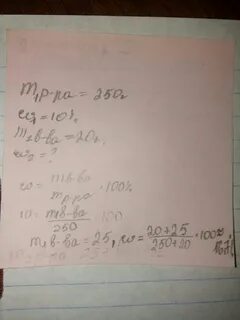 m₁р-ра = 250г
ω₁ = 10%
m₂в-ва = 20г
ω₂ = ?
ω = mв-ва / mр-ра · 100%
10 = m₁в-ва / 250 · 100
m₁в-ва = 25, ω = 20+25 / 250+20 · 100%